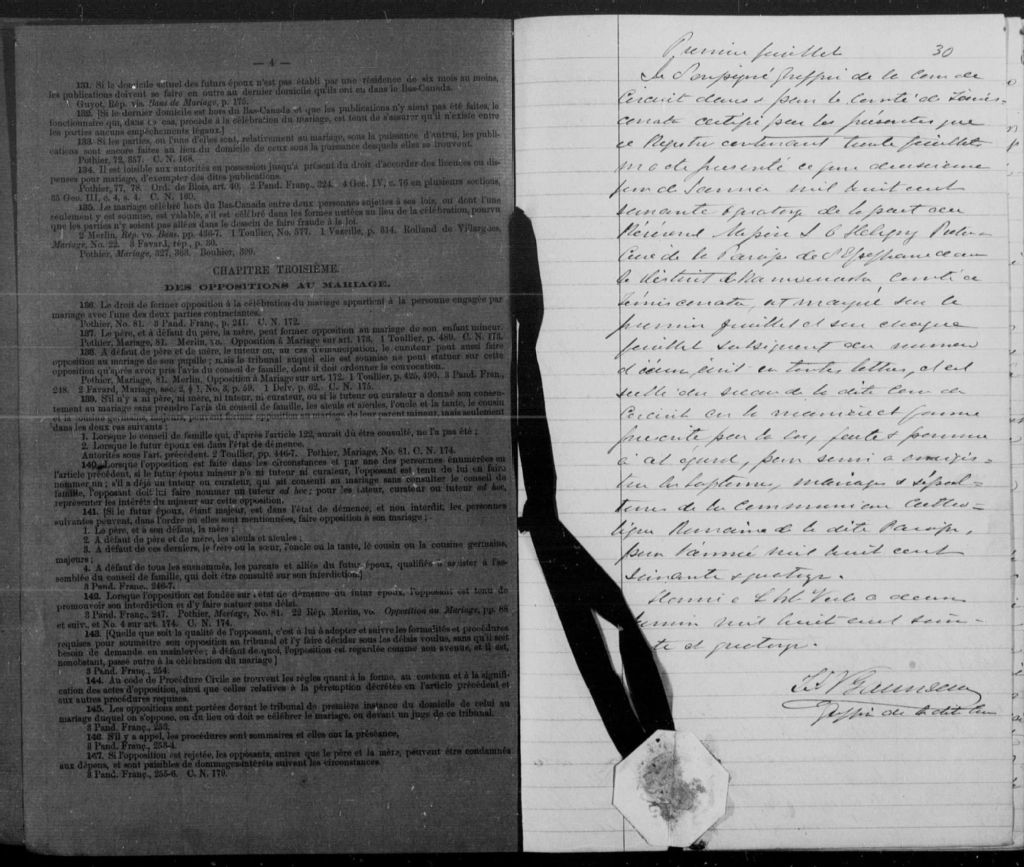 — 4 —
131. Si le domicile actuel des futurs époux n'est pas établi par une résidence de six mois au moins,
les publications doivent se faire en outre au dernier domicile qu'ils ont eu dans le Bas-Canada.
Guyot, Rép. vis. Bans de Mariage, p. 175.
132. [Si le dernier domicile est hors du Bas-Canada et que les publications n'y aient pas été faites, le
fonctionnaire qui, dans ce cas, procède à la célébration du mariage, est tenu de s'assurer qu'il n'existe entre
les parties aucuns empêchements légaux.]
133. Si les parties, ou l'une d'elles sont, relativement au mariage, sous la puissance d'autrui, les publi-
cations sont encore faites au lieu du domicile de ceux sous la puissance desquels elles se trouvent.
Pothier, 72, 357. C. N. 168.
134. Il est loisible aux autorités en possession jusqu'à présent du droit d'accorder des licences ou dis-
penses pour mariage, d'exempter des dites publications.
Pothier, 77, 78. Ord. de Blois, art. 40. 2 Pand. Franç. 324. 4 Geo. IV, c. 76 en plusieurs sections,
35 Geo. III, c. 4, s. 4. C. N. 169.
135. Le mariage célébré hors du Bas-Canada entre deux personnes sujettes à ses lois, ou dont l'une
seulement y est soumise, est valable, s'il est célébré dans les formes usitées au lieu de la célébration, pourvu
que les parties n'y soient pas allées dans le dessein de faire fraude à la loi.
2 Merlin, Rép. vo. Bans, pp. 436-7. 1 Toullier, No. 577. 1 Vazeille, p. 314. Rolland de Villargues,
Mariage, No. 22. 3 Favard, rép., p. 30.
Pothier, Mariage, 327, 363. Bouhier, 390.
CHAPITRE TROISIÈME.
DES OPPOSITIONS AU MARIAGE.
136. Le droit de former opposition à la célébration du mariage appartient à la personne engagée par
mariage avec l'une des deux parties contractantes.
Pothier, No. 81. 3 Pand. Franç., p. 241. C. N. 172.
137. Le père, et à défaut du père, la mère, peut former opposition au mariage de son enfant mineur.
Pothier, Mariage, 81. Merlin, vo. Opposition à Mariage sur art. 173. 1 Toullier, p. 489. C. N. 173.
138. A défaut de père et de mère, le tuteur ou, au cas d'émancipation, le curateur peut aussi faire
opposition au mariage de son pupille; mais le tribunal auquel elle est soumise ne peut statuer sur cette
opposition qu'après avoir pris l'avis du conseil de famille, dont il doit ordonner la convocation.
Pothier, Mariage, 81. Merlin, Opposition à Mariage sur art. 172. 1 Toullier, p. 425, 490. 3 Pand. Fran.,
248. 2 Favard, Mariage, sec. 2, § 1, No. 5, p. 59. 1 Delv. p. 62. C. N. 175.
139. S'il n'y a ni père, ni mère, ni tuteur, ni curateur, ou si le tuteur ou curateur a donné son consen-
tement au mariage sans prendre l'avis du conseil de famille, les aïeuls et aïeules, l'oncle et la tante, le cousin
et la cousine germains, majeurs, peuvent former opposition au mariage de leur parent mineur, mais seulement
dans les deux cas suivants :
1. Lorsque le conseil de famille qui, d'après l'article 122, aurait dû être consulté, ne l'a pas été ;
2. Lorsque le futur époux est dans l'état de démence.
Autorités sous l'art. précédent. 2 Toullier, pp. 446-7. Pothier, Mariage, No. 81. C. N. 174.
140. Lorsque l'opposition est faite dans les circonstances et par une des personnes énumérées en
l'article précédent, si le futur époux mineur n'a ni tuteur ni curateur, l'opposant est tenu de lui en faire
nommer un ; s'il a déjà un tuteur ou curateur, qui ait consenti au mariage sans consulter le conseil de
famille, l'opposant doit lui faire nommer un tuteur ad hoc; pour les tuteur, curateur ou tuteur ad hoc,
représenter les intérêts du mineur sur cette opposition.
141. [Si le futur époux, étant majeur, est dans l'état de démence, et non interdit, les personnes
suivantes peuvent, dans l'ordre où elles sont mentionnées, faire opposition à son mariage ;
1. Le père, et à son défaut, la mère ;
2. A défaut de père et de mère, les aïeuls et aïeules ;
3. A défaut de ces derniers, le frère ou la sœur, l'oncle ou la tante, le cousin ou la cousine germains,
majeurs ;
4. A défaut de tous les susnommés, les parents et alliés du futur époux, qualifiés à assister à l'as-
semblée du conseil de famille, qui doit être consulté sur son interdiction.]
3 Pand. Franç., 246-7.
142. Lorsque l'opposition est fondée sur l'état de démence du futur époux, l'opposant est tenu de
promouvoir son interdiction et d'y faire statuer sans délai.
3 Pand. Franç., 247. Pothier, Mariage, No. 81. 22 Rép. Merlin, vo. Opposition au Mariage, pp. 88
et suiv., et No. 4 sur art. 174. C. N. 174.
143. [Quelle que soit la qualité de l'opposant, c'est à lui à adopter et suivre les formalités et procédures
requises pour soumettre son opposition au tribunal et l'y faire décider sous les délais voulus, sans qu'il soit
besoin de demande en mainlevée; à défaut de quoi, l'opposition est regardée comme non avenue, et il est,
nonobstant, passé outre à la célébration du mariage]
3 Pand. Franç., 254.
144. Au code de Procédure Civile se trouvent les règles quant à la forme, au contenu et à la signifi-
cation des actes d'opposition, ainsi que celles relatives à la péremption décrétées en l'article précédent et
aux autres procédures requises.
145. Les oppositions sont portées devant le tribunal de première instance du domicile de celui au
mariage duquel on s'oppose, ou du lieu où doit se célébrer le mariage, ou devant un juge de ce tribunal.
3 Pand. Franç., 253.
146. S'il y a appel, les procédures sont sommaires et elles ont la préséance,
3 Pand. Franç., 253-4.
147. Si l'opposition est rejetée, les opposants, autres que le père et la mère, peuvent être condamnés
aux dépens, et sont passibles de dommages-intérêts suivant les circonstances.
3 Pand. Franç., 255-6. C. N. 179.
Premier feuillet 30
Le Soussigné Greffier de la Cour de
Circuit dans & pour le Comté de Témis-
couata certifie par les présentes que
ce Registre contenant trente feuillets
m'a été présenté ce jour deuxième
jour de Janvier mil huit cent
soixante & quatorze de la part du
Révérend Messire
Curé de la Paroisse de
le District de Kamouraska Comté de
Témiscouata, et marqué sur le
premier feuillet et sur chaque
feuillet subséquent du numéro
d'icelui écrit en toutes lettres, et est
scellé du sceau de la dite Cour de
Circuit en la manière et forme
prescrite par la loi, faite & pourvue
à cet égard, pour servir à enregis-
trer les baptêmes, mariages & sépul-
tures de la Communion Catho-
lique Romaine de la dite Paroisse,
pour l'année mil huit cent
soixante & quatorze.
Donné à L'Isle Verte ce deux
Janvier mil huit cent soix-
te et quatorze.
Greffier de la dite Cour